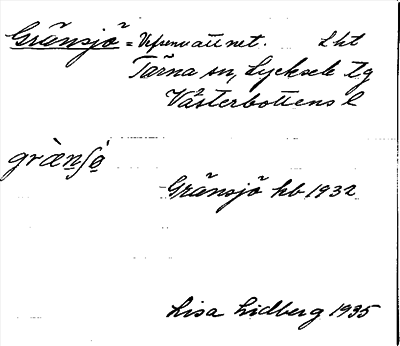 Gränsjö² = Vefsenvattnet. Lht
Tärna sn, Lycksele Tg
Västerbottens l
Gränsjö hb 1932
Lisa Lidberg 1935